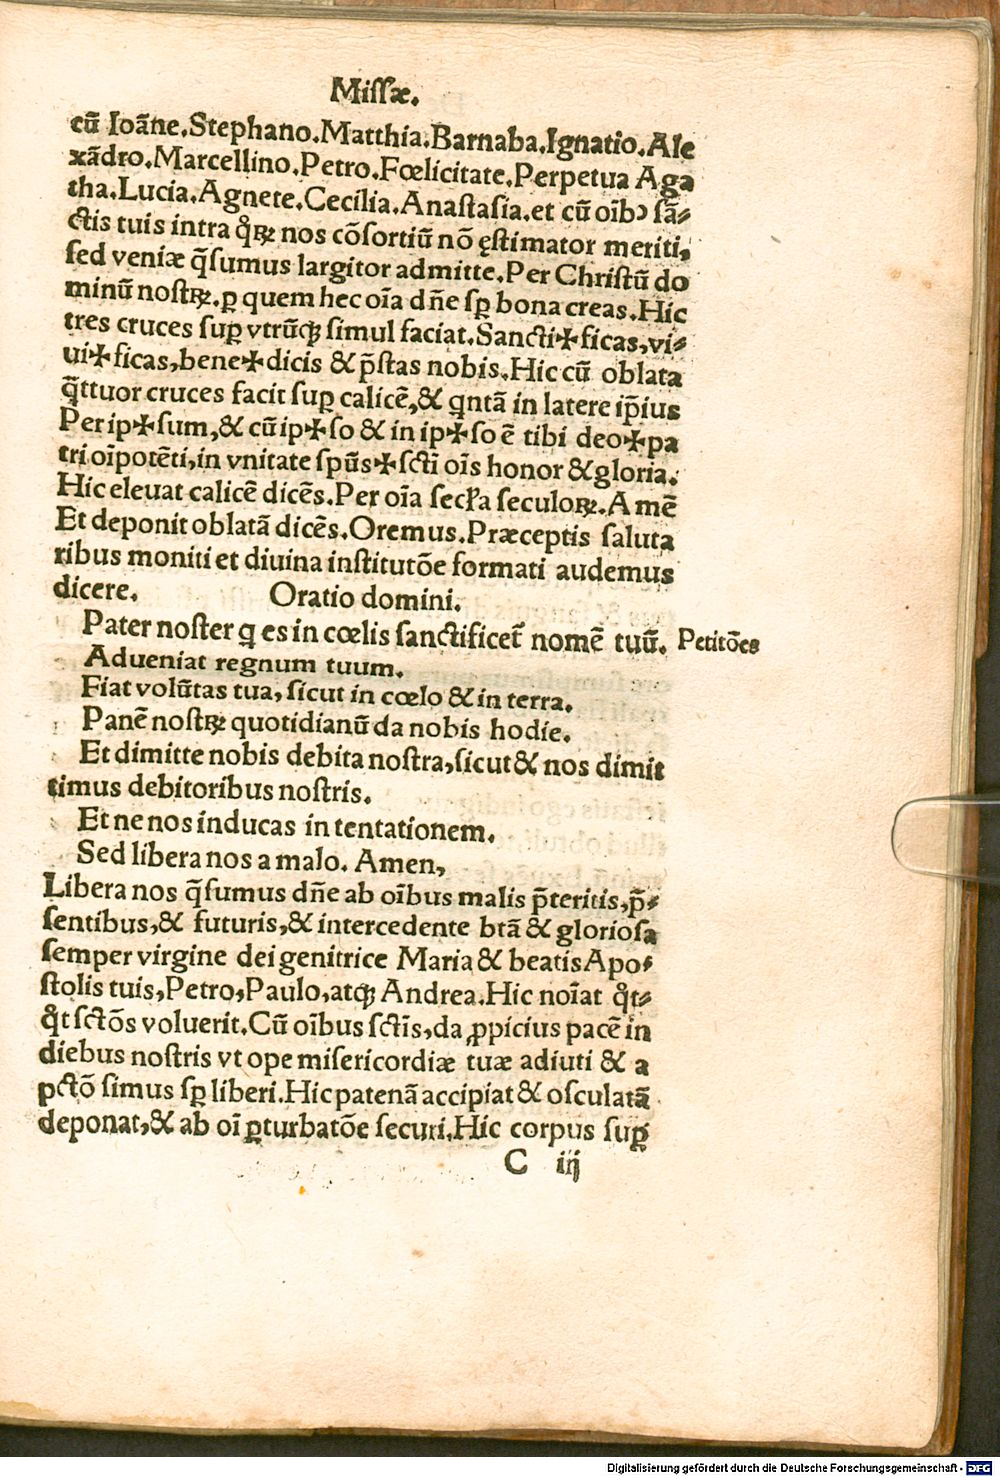 Missæ.
cū Ioāne.Stephano.Matthia.Barnaba.Ignatio.Ale
xādro.Marcellino.Petro.Fœlicitate.Perpetua Aga
tha.Lucia.Agnete.Cecilia.Anastasia.et cū oībꝰ sā⸗
ctis tuis intra q̊ꝝ nos cōsortiū nō ęstimator meriti,
sed veniæ q̄sumus largitor admitte.Per Christū do
minū nostꝝ.ꝑ quem hec oīa dn̄e sꝑ bona creas.Hic
tres cruces suꝑ vtrūqꝫ simul faciat.Sancti✠ficas,vi⸗
ui✠ficas,bene✠dicis & p̄stas nobis.Hic cū oblata
q̄ttuor cruces facit suꝑ calicē,& qntā in latere ip̄ius
Per ip✠sum,& cū ip✠so & in ip✠so ē tibi deo✠pa
tri oīpotēti,in vnitate spūs✠sctī oīs honor & gloria.
Hic eleuat calicē dicēs.Per oīa secła seculoꝝ.Amē
Et deponit oblatā dicēs.Oremus.Præceptis saluta
ribus moniti et diuina institutōe formati audemus
dicere. Oratio domini.
Pater noster q es in cœlis sanctificet̄ nomē tuū. Petitōes
Adueniat regnum tuum.
Fiat volūtas tua, sicut in cœlo & in terra.
Panē nostꝝ quotidianū da nobis hodie.
Et dimitte nobis debita nostra,sicut & nos dimit
timus debitoribus nostris.
Et ne nos inducas in tentationem.
Sed libera nos a malo. Amen,
Libera nos q̄sumus dn̄e ab oībus malis p̄teritis,p̄⸗
sentibus,& futuris,& intercedente btā & gloriosa
semper virgine dei genitrice Maria & beatis Apo⸗
stolis tuis,Petro,Paulo,atqꝫ Andrea.Hic noīat q̊t⸗
q̊t sctōs voluerit.Cū oībus sctīs,da ꝓpicius pacē in
diebus nostris vt ope misericordiæ tuæ adiuti & a
pctō simus sꝑ liberi.Hic patenā accipiat & osculatā
deponat,& ab oī ꝑturbatōe securi.Hic corpus suꝑ
C iij
Digitalisierung gefördert durch die Deutsche Forschungsgemeinschaft - DFG